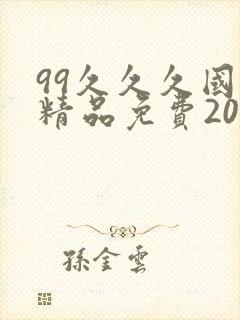 99久久久國
精品免費20
孫金雲